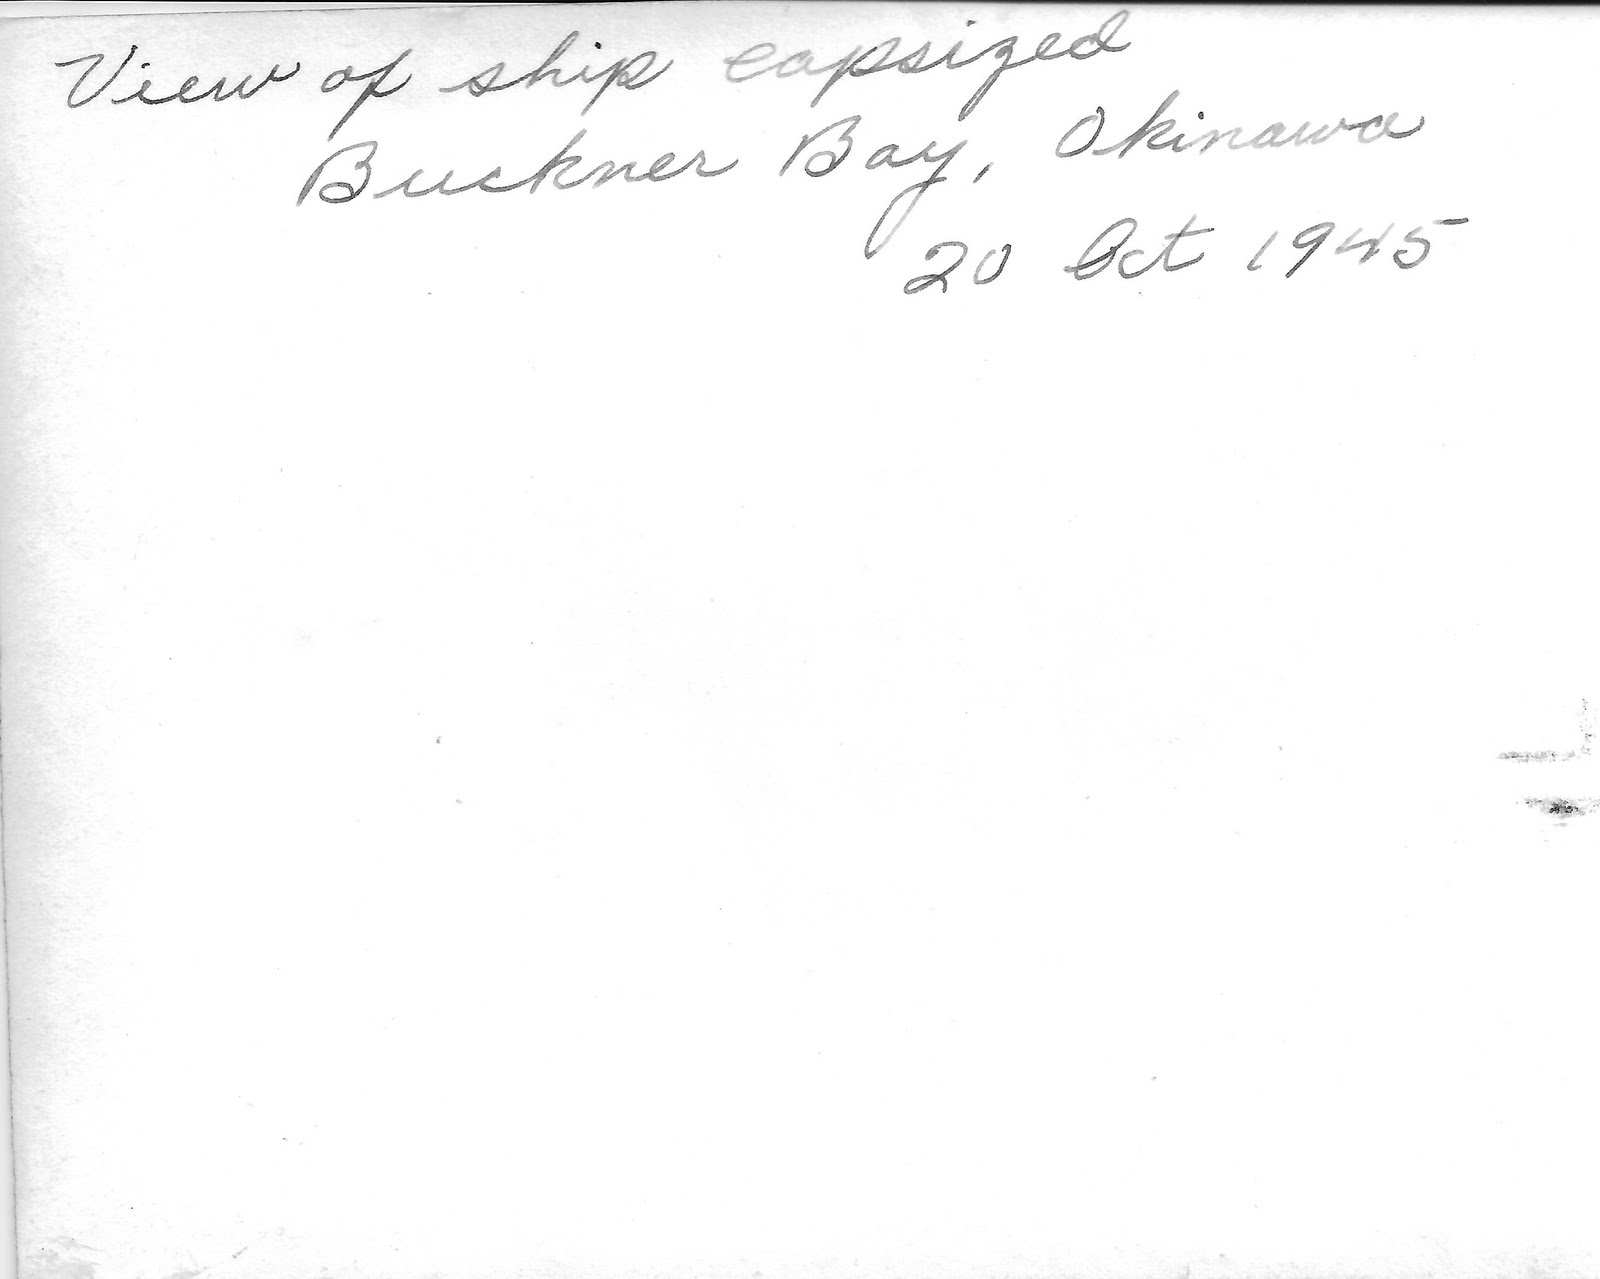 View of ship capsized
Buckner Bay, Okinawa
20 Oct 1945